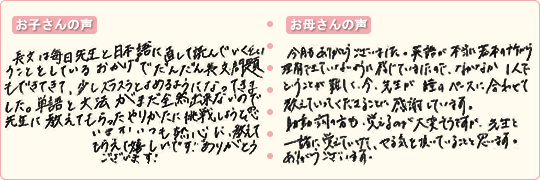 お子さんの声
長文は毎日先生と日本語に直して読んでいくという
うことをしている おかげで だんだん長文問題
もできてきて、少しスラスラとよめるようになってきま
した。単語と文法がまだ全然出来ないので
先生に教えてもらったやりかたに挑戦しようと思
います。いつも熱心に教えて
もらえて嬉しいです!ありがとう
ございます!
お母さんの声
今月もありがとうございました。英語が本当に基本の
理解できていないように感じていましたので、なかなか1人で
というのが難しく、今、先生が 瞳のペースに合わせて
教えていってくださることに感謝しています。
助動詞の方も、覚えるのが大変そうですが、先生と
一緒に覚えていけて、やる気を頂いていることと思います。
ありがとうございます。